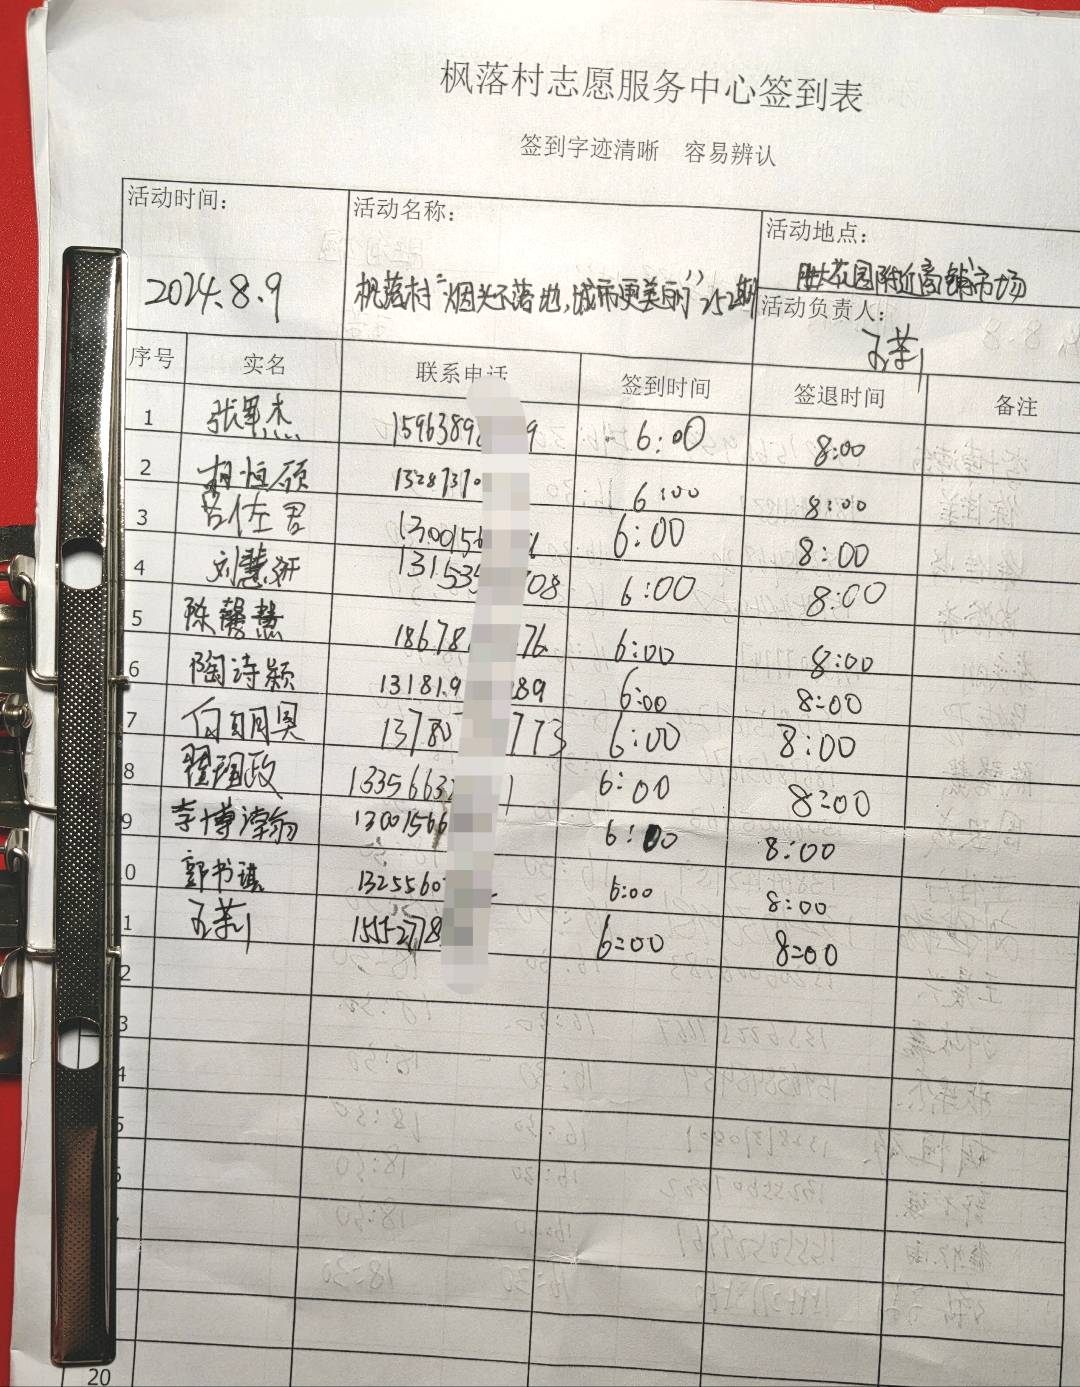 枫落村志愿服务中心签到表
签到字迹清晰 容易辨认
活动时间： 活动名称： 活动地点：
2024.8.9 枫落村“烟头不落地，城市更美丽”252期 花园附近商铺市场
活动负责人：
王莉
序号 实名 联系电话 签到时间 签退时间 备注
1 张果杰 1596389 9 6:00 8:00
2 相恒硕 1328731 6:00 8:00
3 1300156 6:00 8:00
4 刘慧妍 131535 08 6:00 8:00
5 陈馨慧 18678 76 6:00 8:00
6 陶诗颖 131819 89 6:00 8:00
7 13780 773 6:00 8:00
8 翟理政 13356632 1 6:00 8:00
9 李博瀚 13001566 6:00 8:00
0 郭书琪 1325560 6:00 8:00
1 王莉 15552778 6:00 8:00
2
3
4
5
6
20